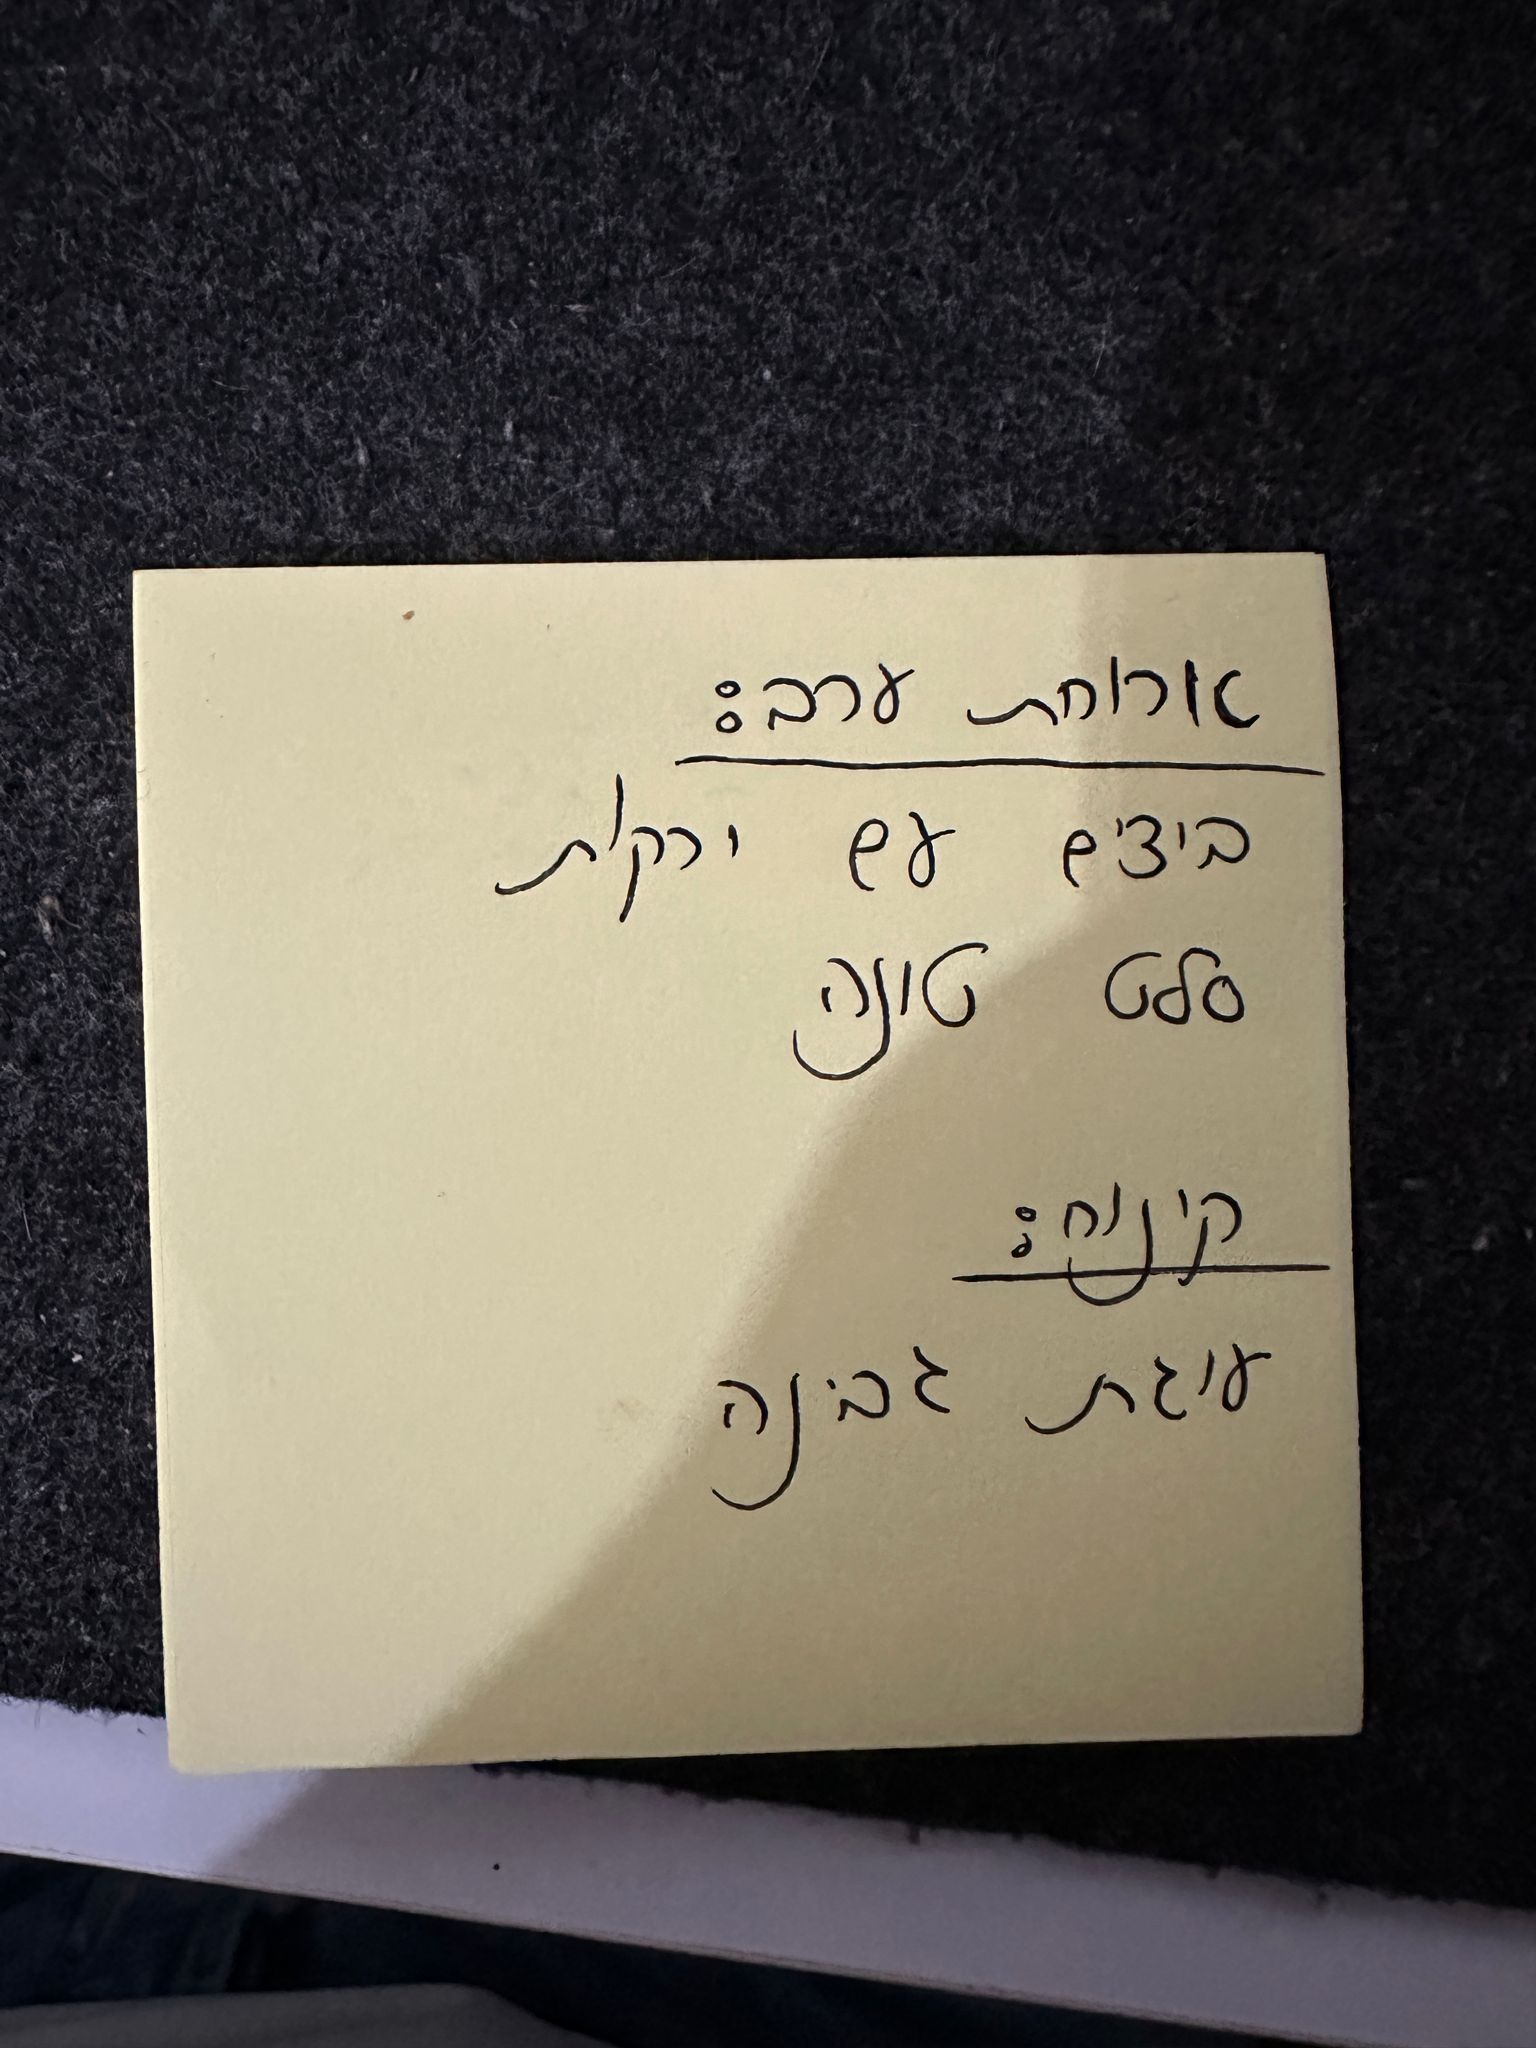 ארוחת ערב:
ביצים עם ירקות
סלט טונה
קינוח:
עוגת גבינה